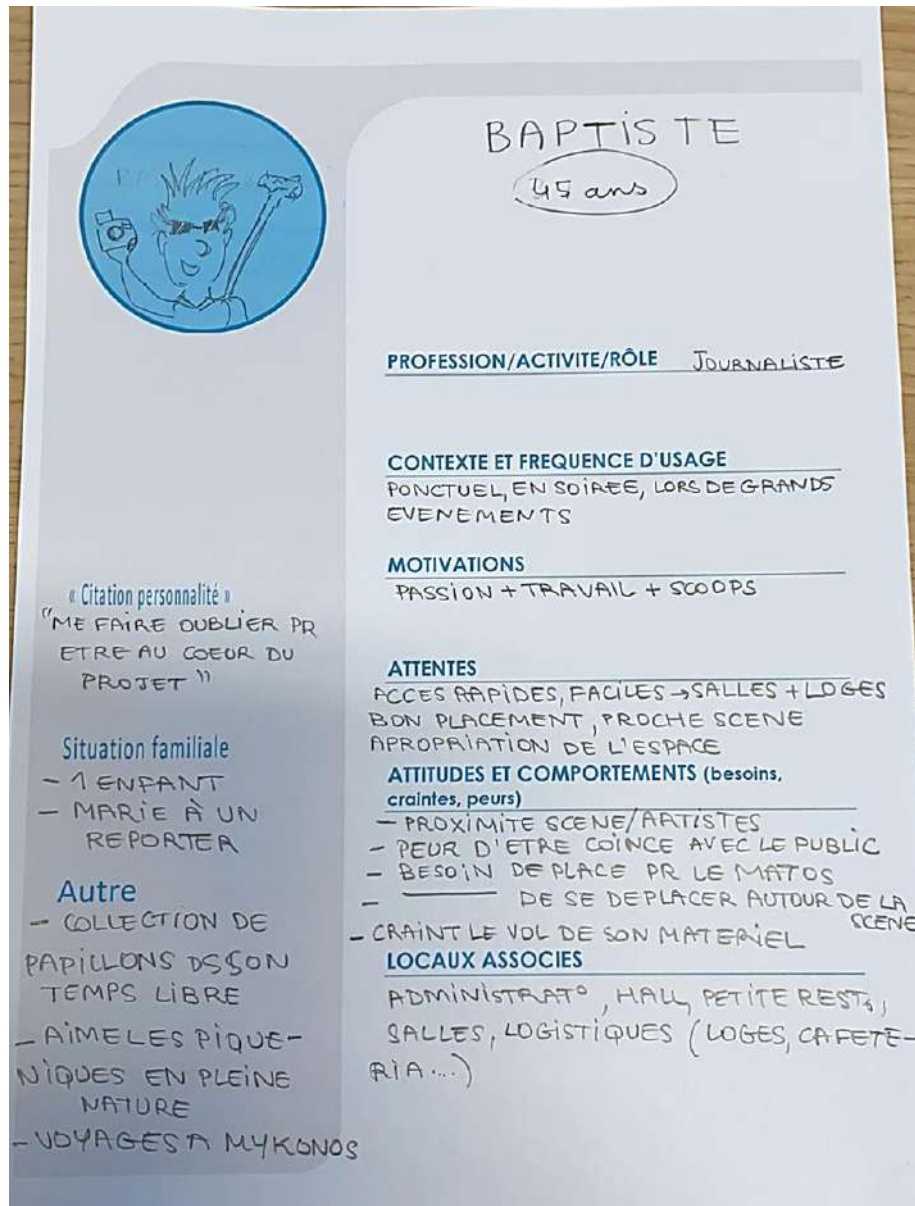 BAPTISTE
45 ans
PROFESSION/ACTIVITE/RÔLE JOURNALISTE
CONTEXTE ET FREQUENCE D'USAGE
PONCTUEL, EN SOIREE, LORS DE GRANDS
EVENEMENTS
MOTIVATIONS
PASSION + TRAVAIL + SCOOPS
ATTENTES
ACCES RAPIDES, FACILES → SALLES + LOGES
BON PLACEMENT, PROCHE SCENE
APROPRIATION DE L'ESPACE
ATTITUDES ET COMPORTEMENTS (besoins,
craintes, peurs)
- PROXIMITE SCENE/ARTISTES
- PEUR D'ETRE COINCE AVEC LE PUBLIC
- BESOIN DE PLACE PR LE MATOS
- ——— DE SE DEPLACER AUTOUR DE LA
SCENE
- CRAINT LE VOL DE SON MATERIEL
LOCAUX ASSOCIES
ADMINISTRAT°, HALL, PETITE REST,
SALLES, LOGISTIQUES (LOGES, CAFETE-
RIA...)
« Citation personnalité »
"ME FAIRE OUBLIER PR
ETRE AU COEUR DU
PROJET"
Situation familiale
- 1 ENFANT
- MARIE À UN
REPORTER
Autre
- COLLECTION DE
PAPILLONS DS SON
TEMPS LIBRE
- AIME LES PIQUE-
NIQUES EN PLEINE
NATURE
- VOYAGES A MYKONOS